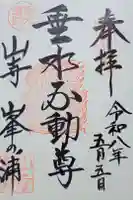 奉拝
令和八年
五月五日
垂水不動尊
山寺
峯の浦